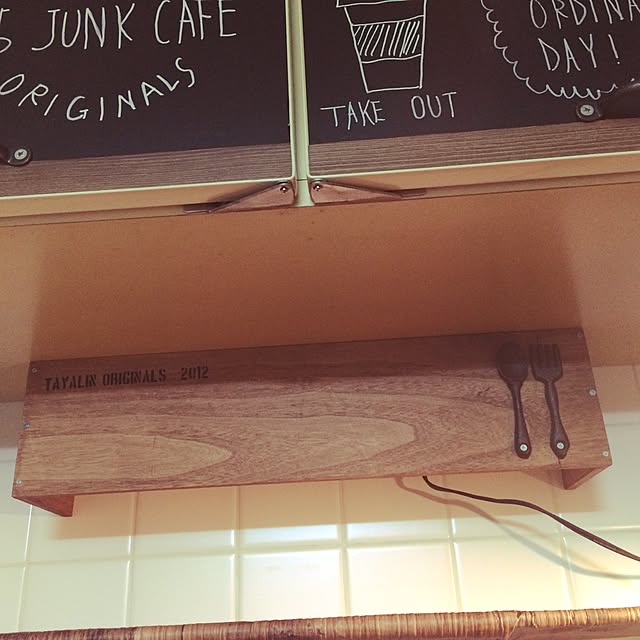 5 JUNK CAFE
ORIGINALS
TAKE OUT
DAY!
TAYALIN ORIGINALS 2012